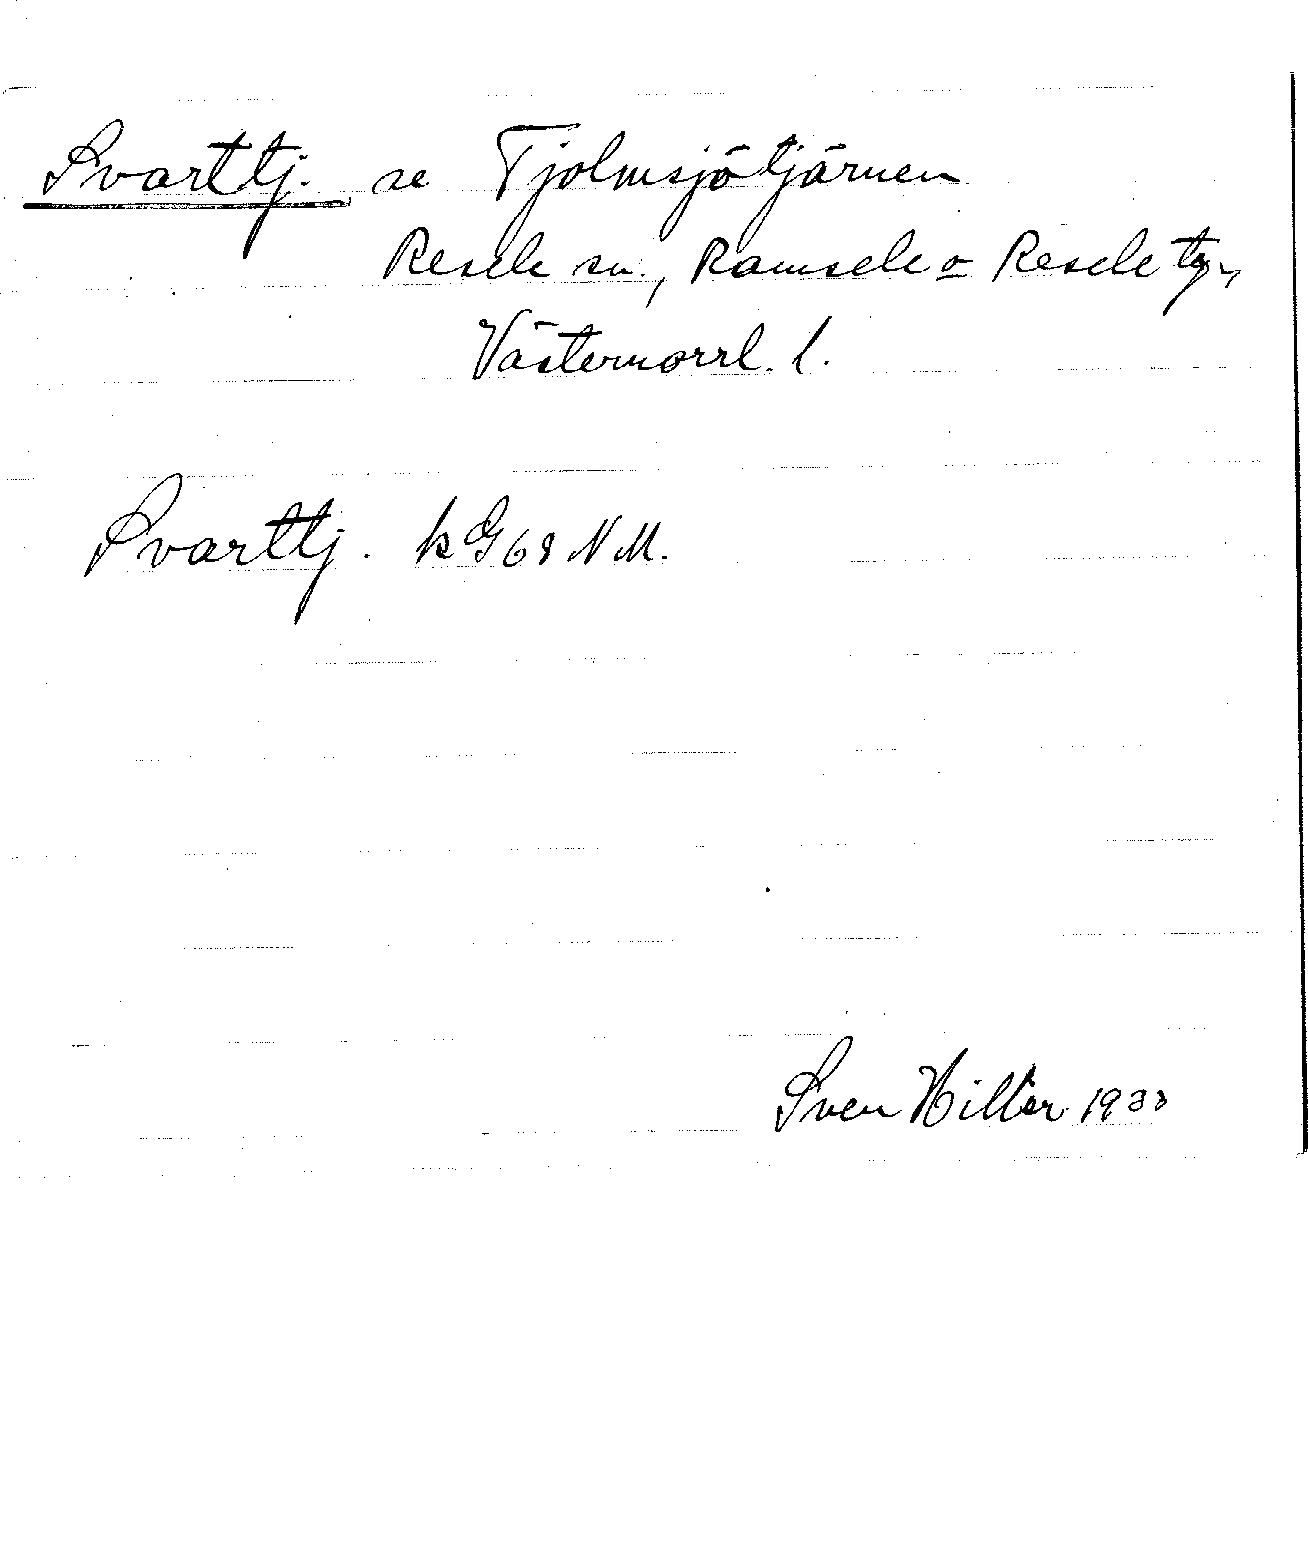 Svarttj. se Tjolmsjötjärnen
Resele sn., Ramsele o Resele tg.,
Västernorrl. l.
Svarttj. kG68NM.
Sven Hiller 1933